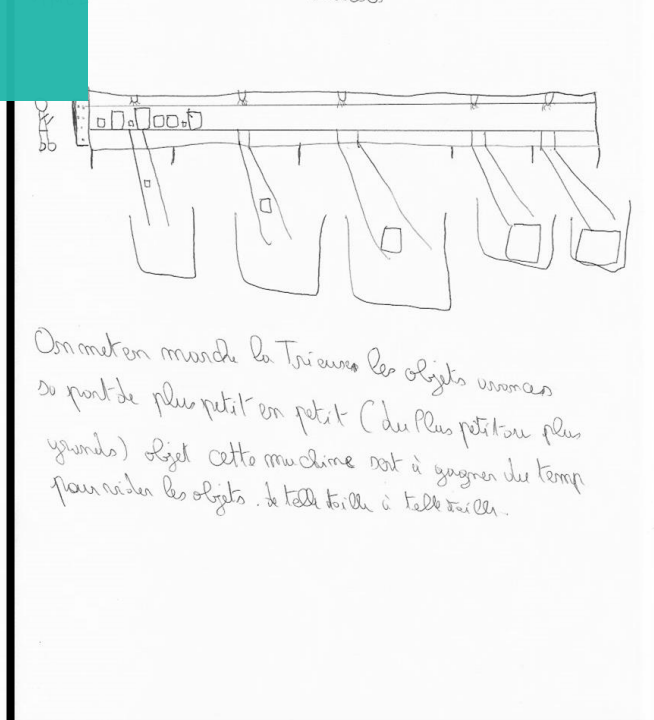 On met en marche la Trieuse les objets
de plus petit en petit (du Plus petit au plus
grands) objet cette machine sert à gagner du temp
pour vider les objets. de telle taille à telle taille.